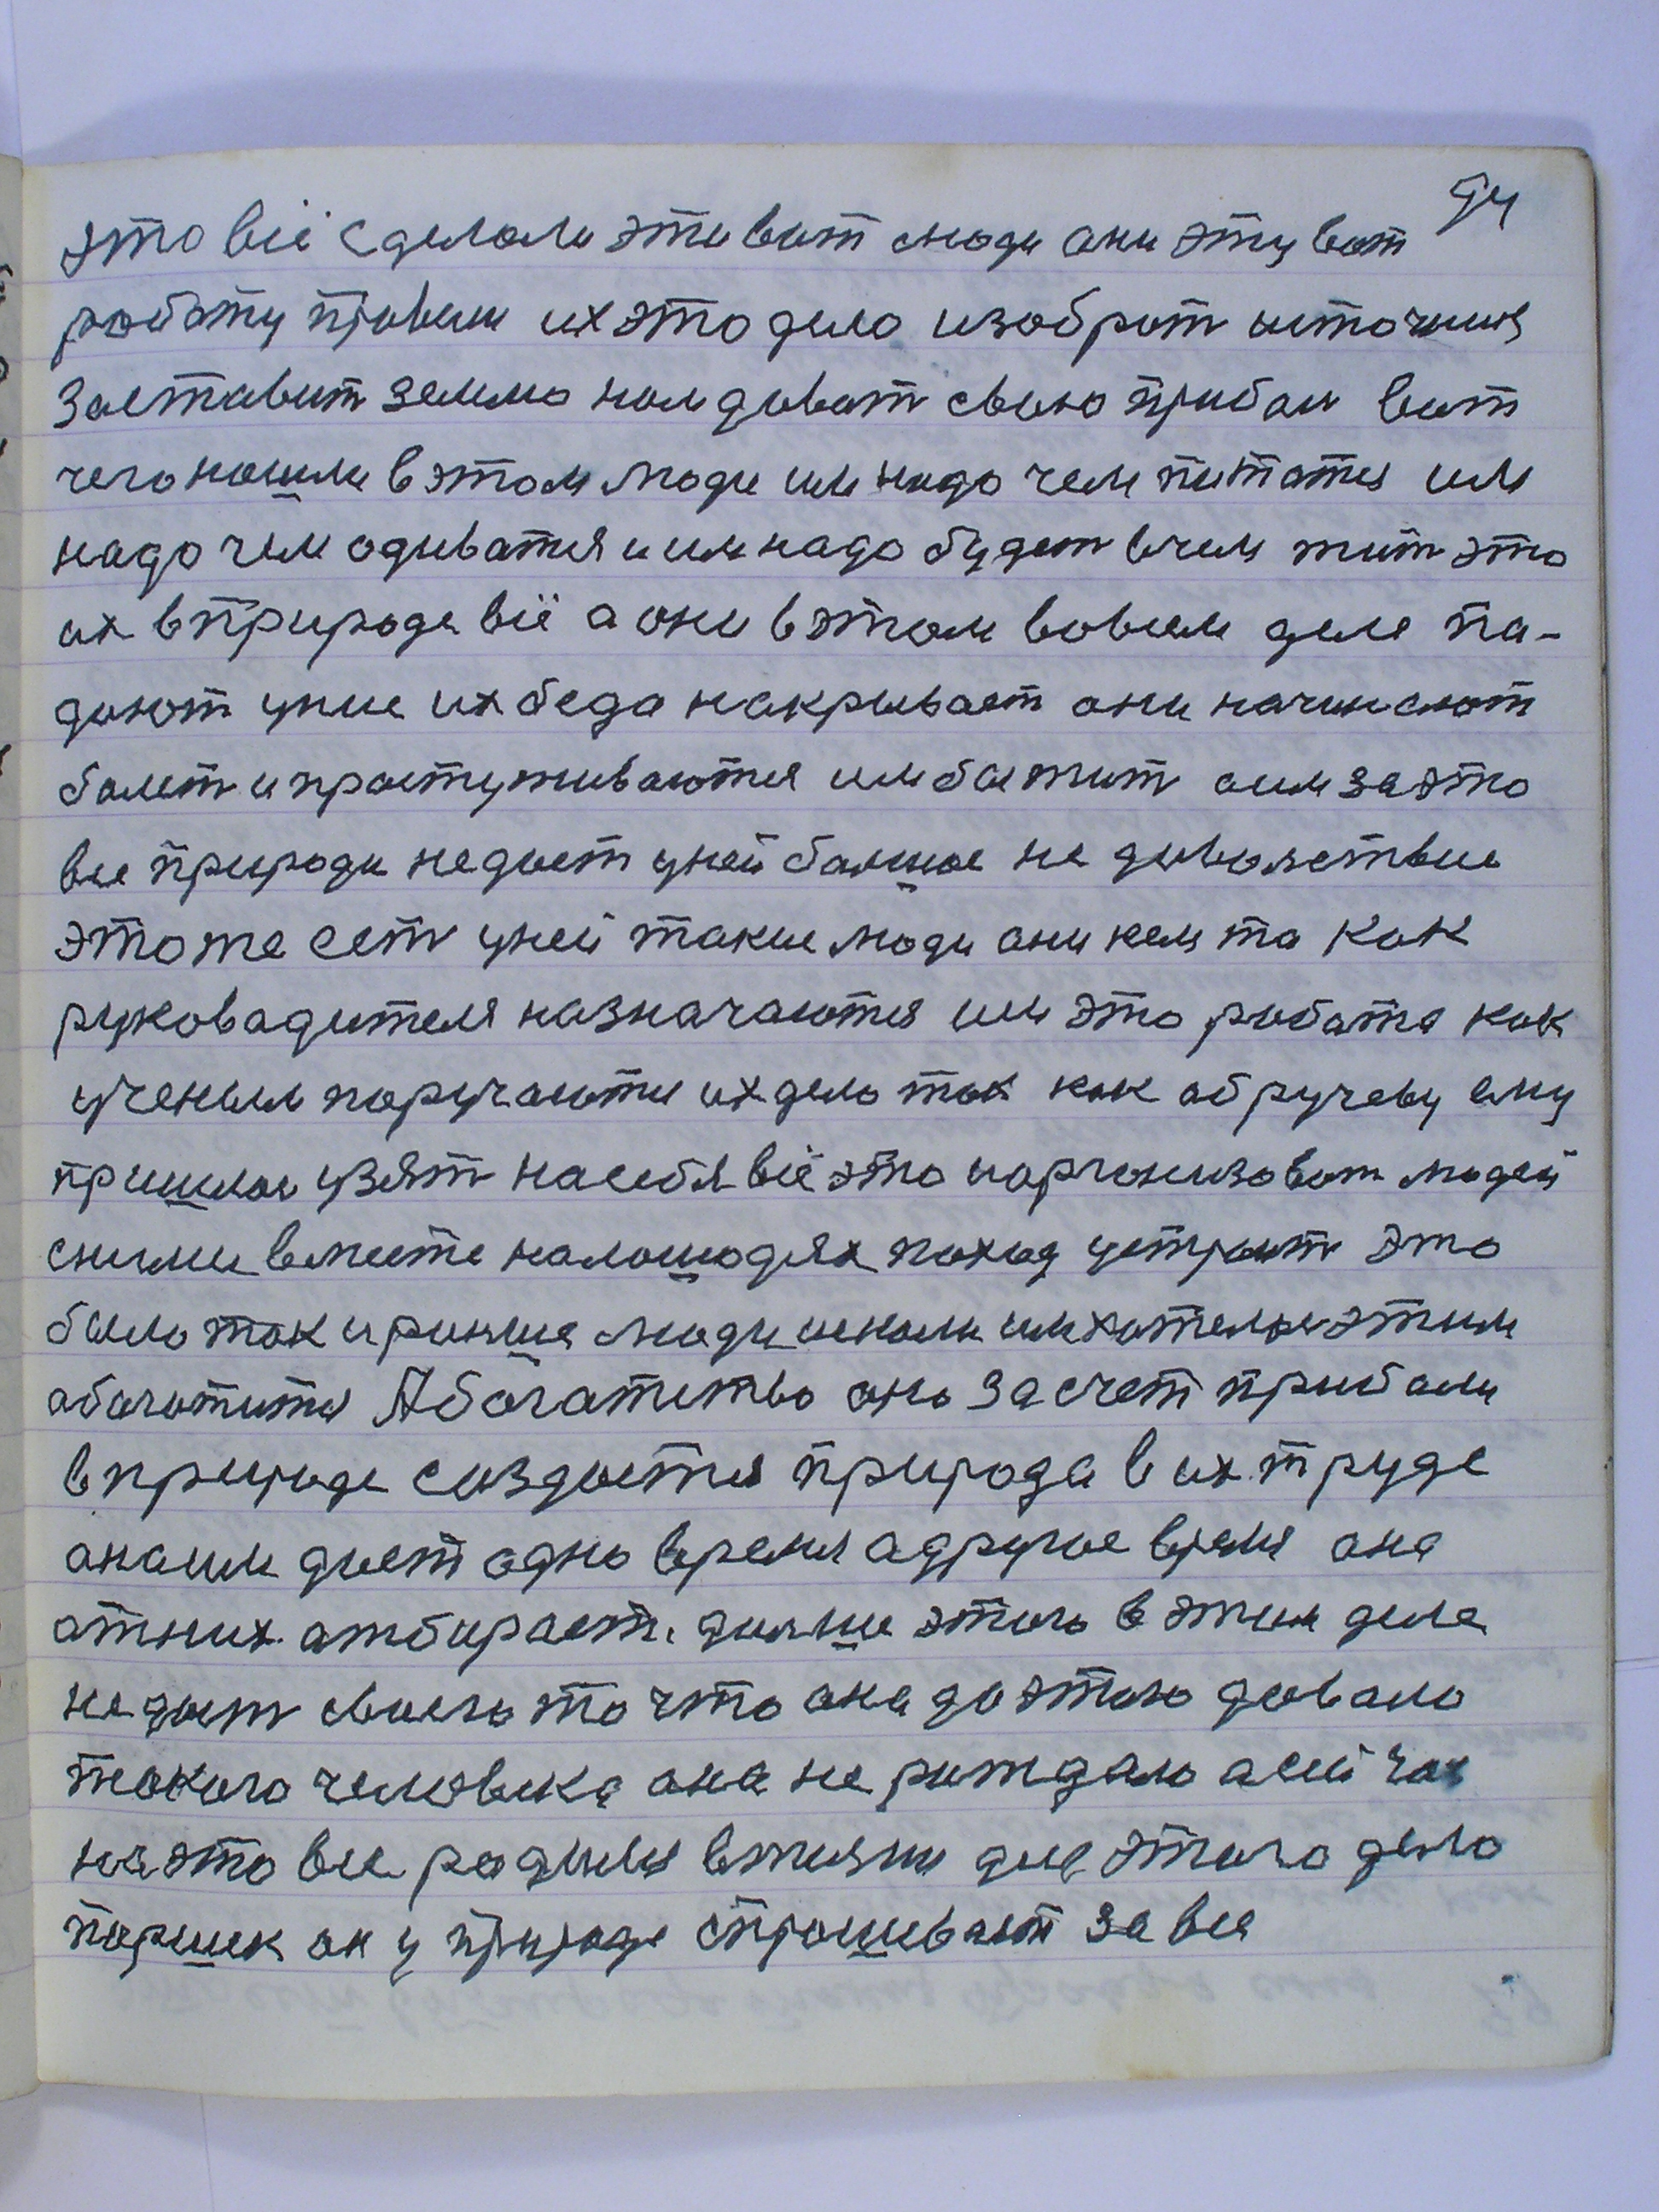 94
это всё сделали эти вот люди они эту вот
работу провели их это дело изобрат источния
заставит землю нам дават свою прибал вот
чего нашли в этом люди им надо чем питатся им
надо чем одеватся и им надо будет в чем жит это
их в природе всё а они в этом во всем деле па-
дают у них их беда накрывает они начинают
балет и простуживаются им бы жит а им за это
все природа не дает у ней балшое не доволства
это же ест у ней такие люди они кем та как
руковадителя назначаются им это работа как
ученым поручаются их дело так как обручеву ему
пришлос узят на себя всё это и организоват людей
с ними вместе на лошодях поход устроит это
было так и раньше люди искали им хотелося этим
абогатится А богатство оно за счет прибали
в природе создается природа в их труде
она им дает одно время а другое время она
от них отбирает. далше этого в этим деле
не дает своего то что она до этого давала
такого человека она не рождала а сейчас
на это все родился в жизни для этого дела
паршек он у природе спрошивает за все